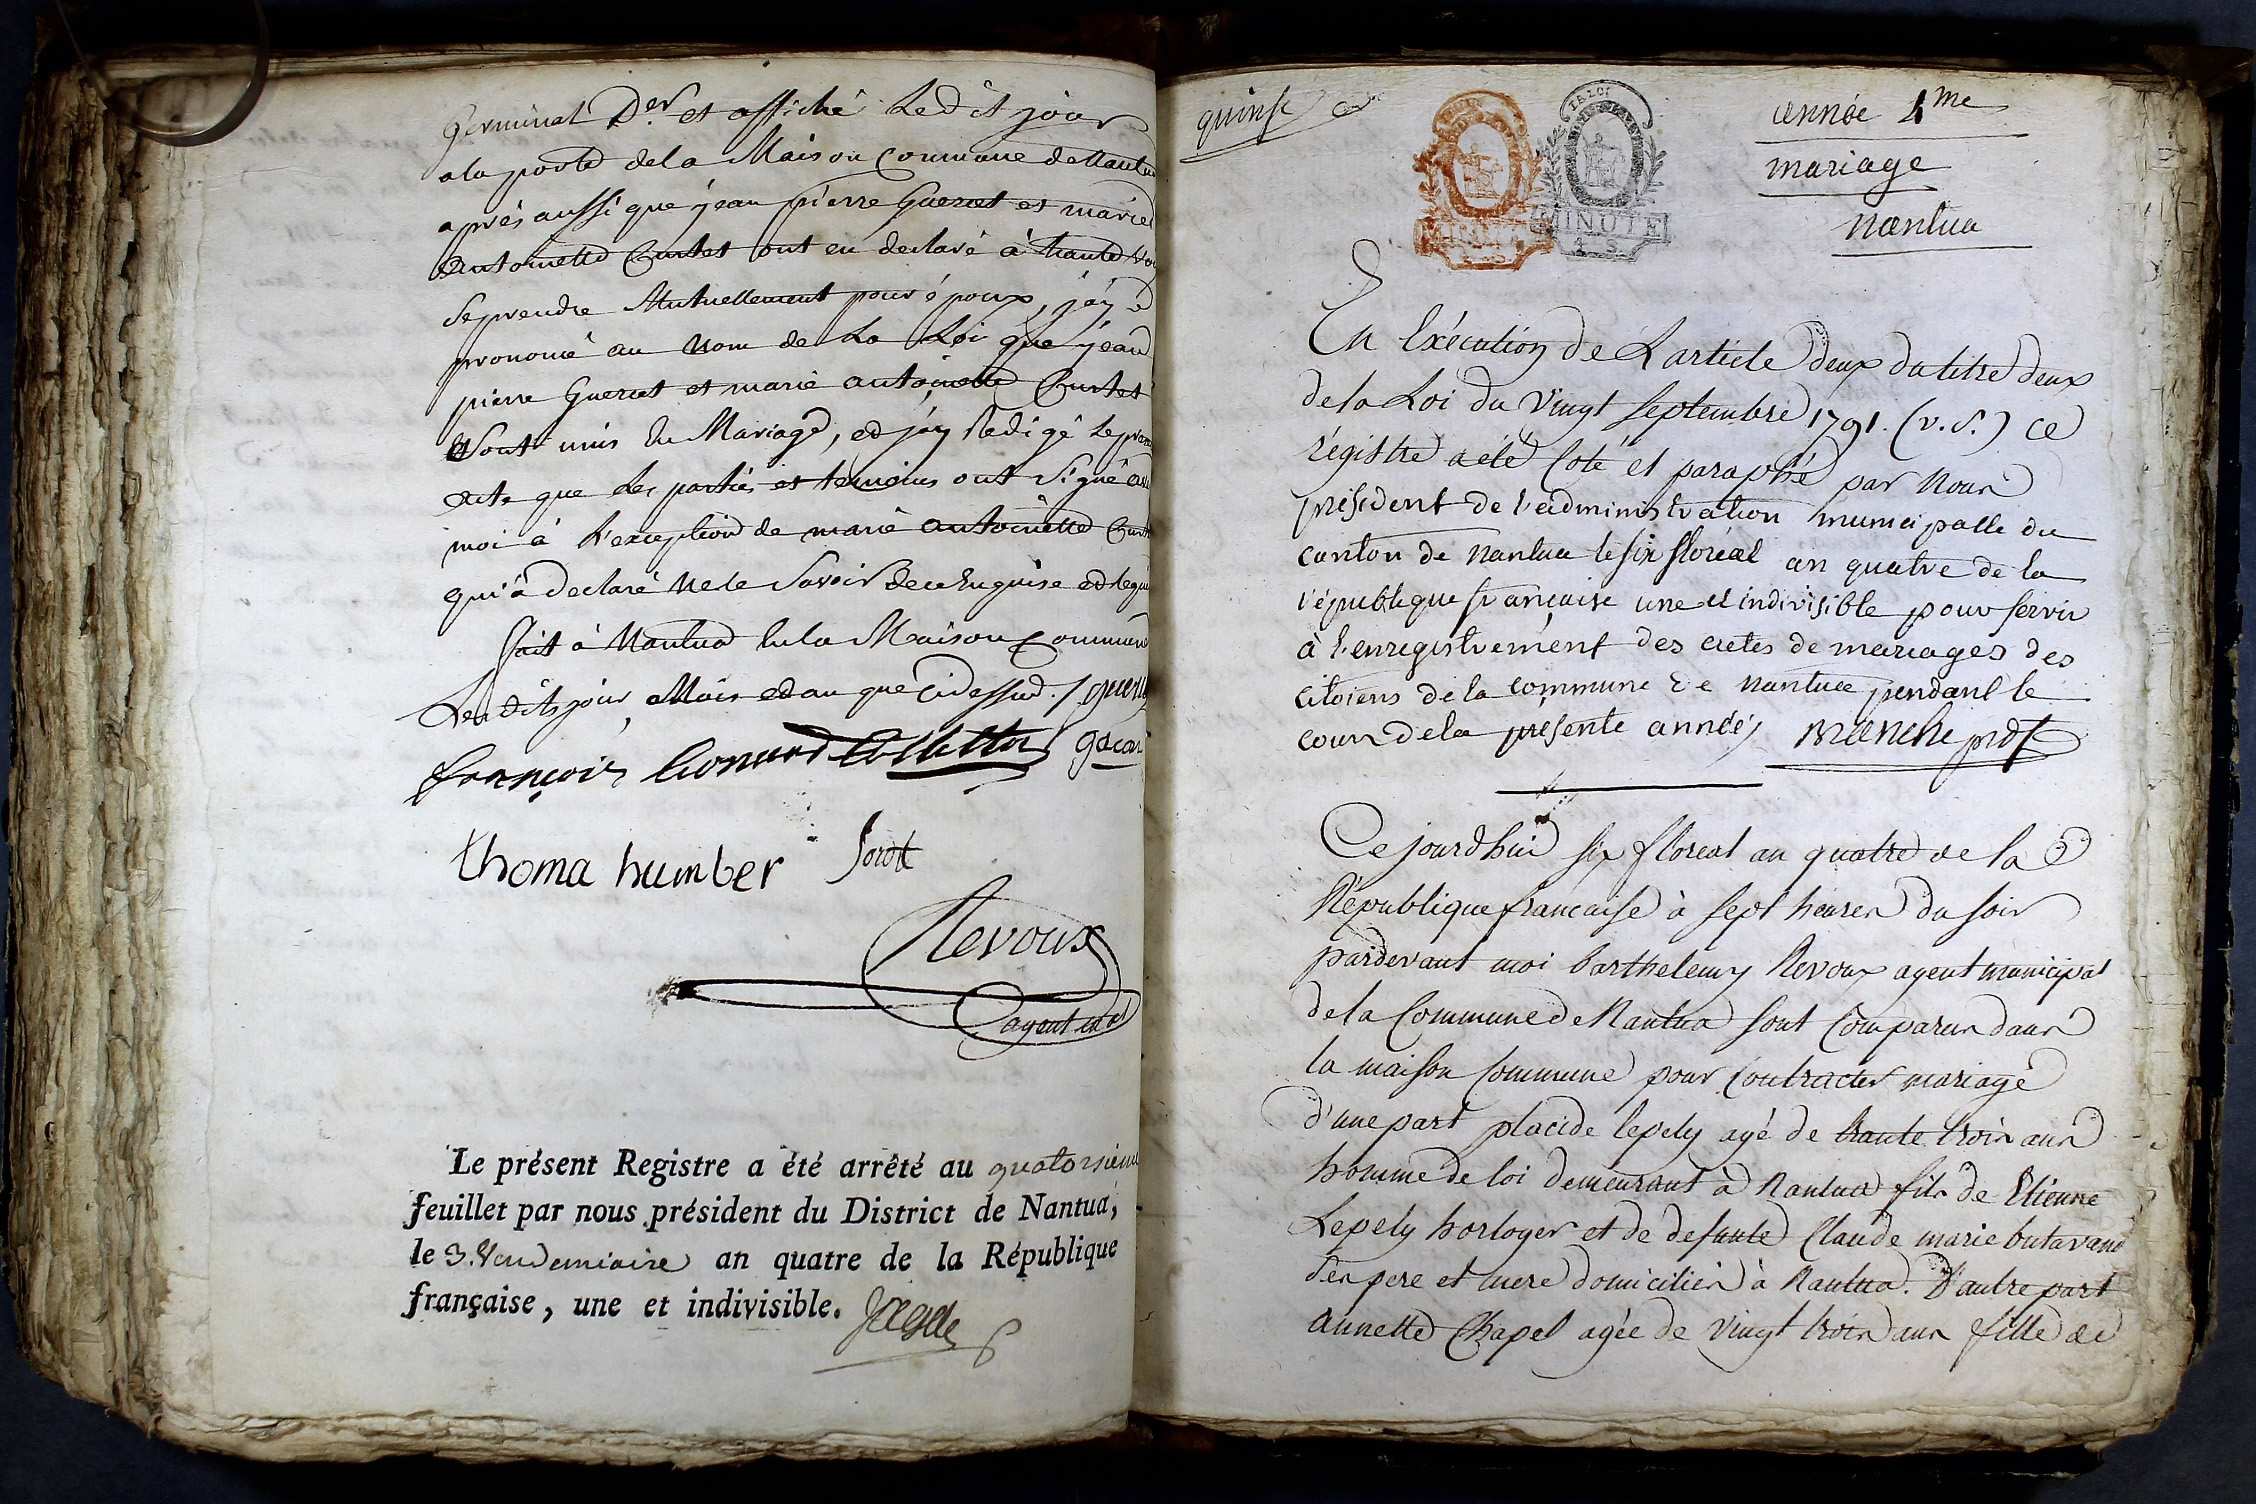 Germinal D.er et affiché Ledit jour
a la porte de la Maison Commune de Nantua
après aussi que jean pierre Gueret et marie
antoinette Curtet ont eu declaré à haute voix
se prendre Mutuellement pour époux, j'ay
prononcé au Nom de La Loi que jean
pierre Gueret et marie antoinette Curtet
Sont unis En Mariage, et j'ay Redigé le présent
acte que les parties et temoins ont Signé avec
moi à l'exception de marie antoinette Curtet
qui a declaré ne le Savoir de ce Enquise et Requise
fait à Nantua En la Maison Commune
Lesdits jour Mois et an que ci dessus.
françois
thoma humber
Revoux
agent m.al
Le présent Registre a été arrêté au quatorsieme
feuillet par nous président du District de Nantua,
le 3. Vendemiaire an quatre de la République
française, une et indivisible.
quinse
LA LOI
MINUTE
4. S.
année 4me
mariage
nantua
En Exécution de L'article deux du titre deux
de la Loi du Vingt Septembre 1791. (v. S.) ce
régistre a été Coté et paraphé par Nous
président de l'administration municipalle du
canton de Nantua le six floréal an quatre de la
république française une et indivisible pour servir
à l'enregistrement des actes de mariages des
citoiens de la commune de Nantua pendant le
cours de la présente année
Ce jourdhui six floreal an quatre de la
République francaise à sept heures du soir
pardevant moi barthelemy Revoux agent municipal
de la Commune de Nantua sont Comparus dans
la maison Commune pour Contracter mariage
d'une part placide lepely agé de trante trois ans
homme de loi demeurant à Nantua fils de Etienne
Lepely horloger et de defunte Claude marie butavand
ses pere et mere domiciliés à Nantua. D'autre part
annette Chapel agée de vingt trois ans fille de